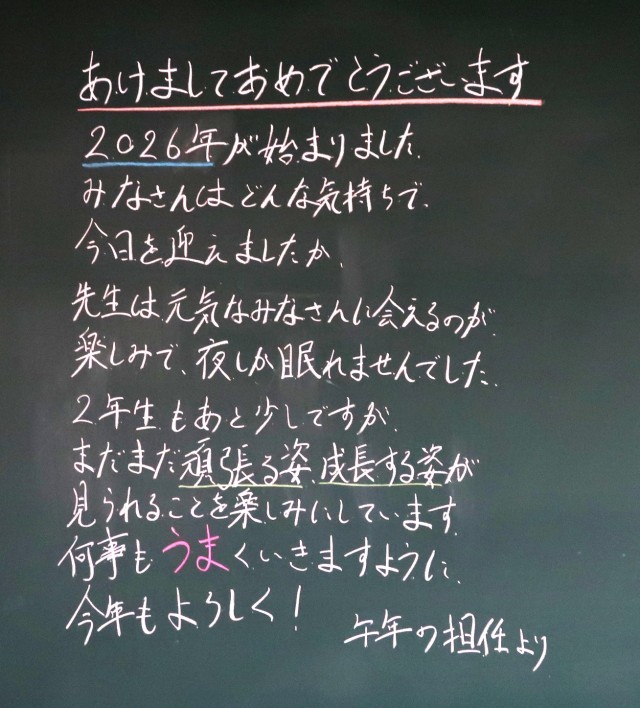 あけましておめでとうございます
2026年が始まりました.
みなさんはどんな気持ちで、
今日を迎えましたか、
先生は元気なみなさんに会えるのが
楽しみで、夜しか眠れませんでした.
2年生もあと少しですが、
まだまだ頑張る姿、成長する姿が
見られることを楽しみにしています.
何事もうまくいきますように、
今年もよろしく!
午年の担任より